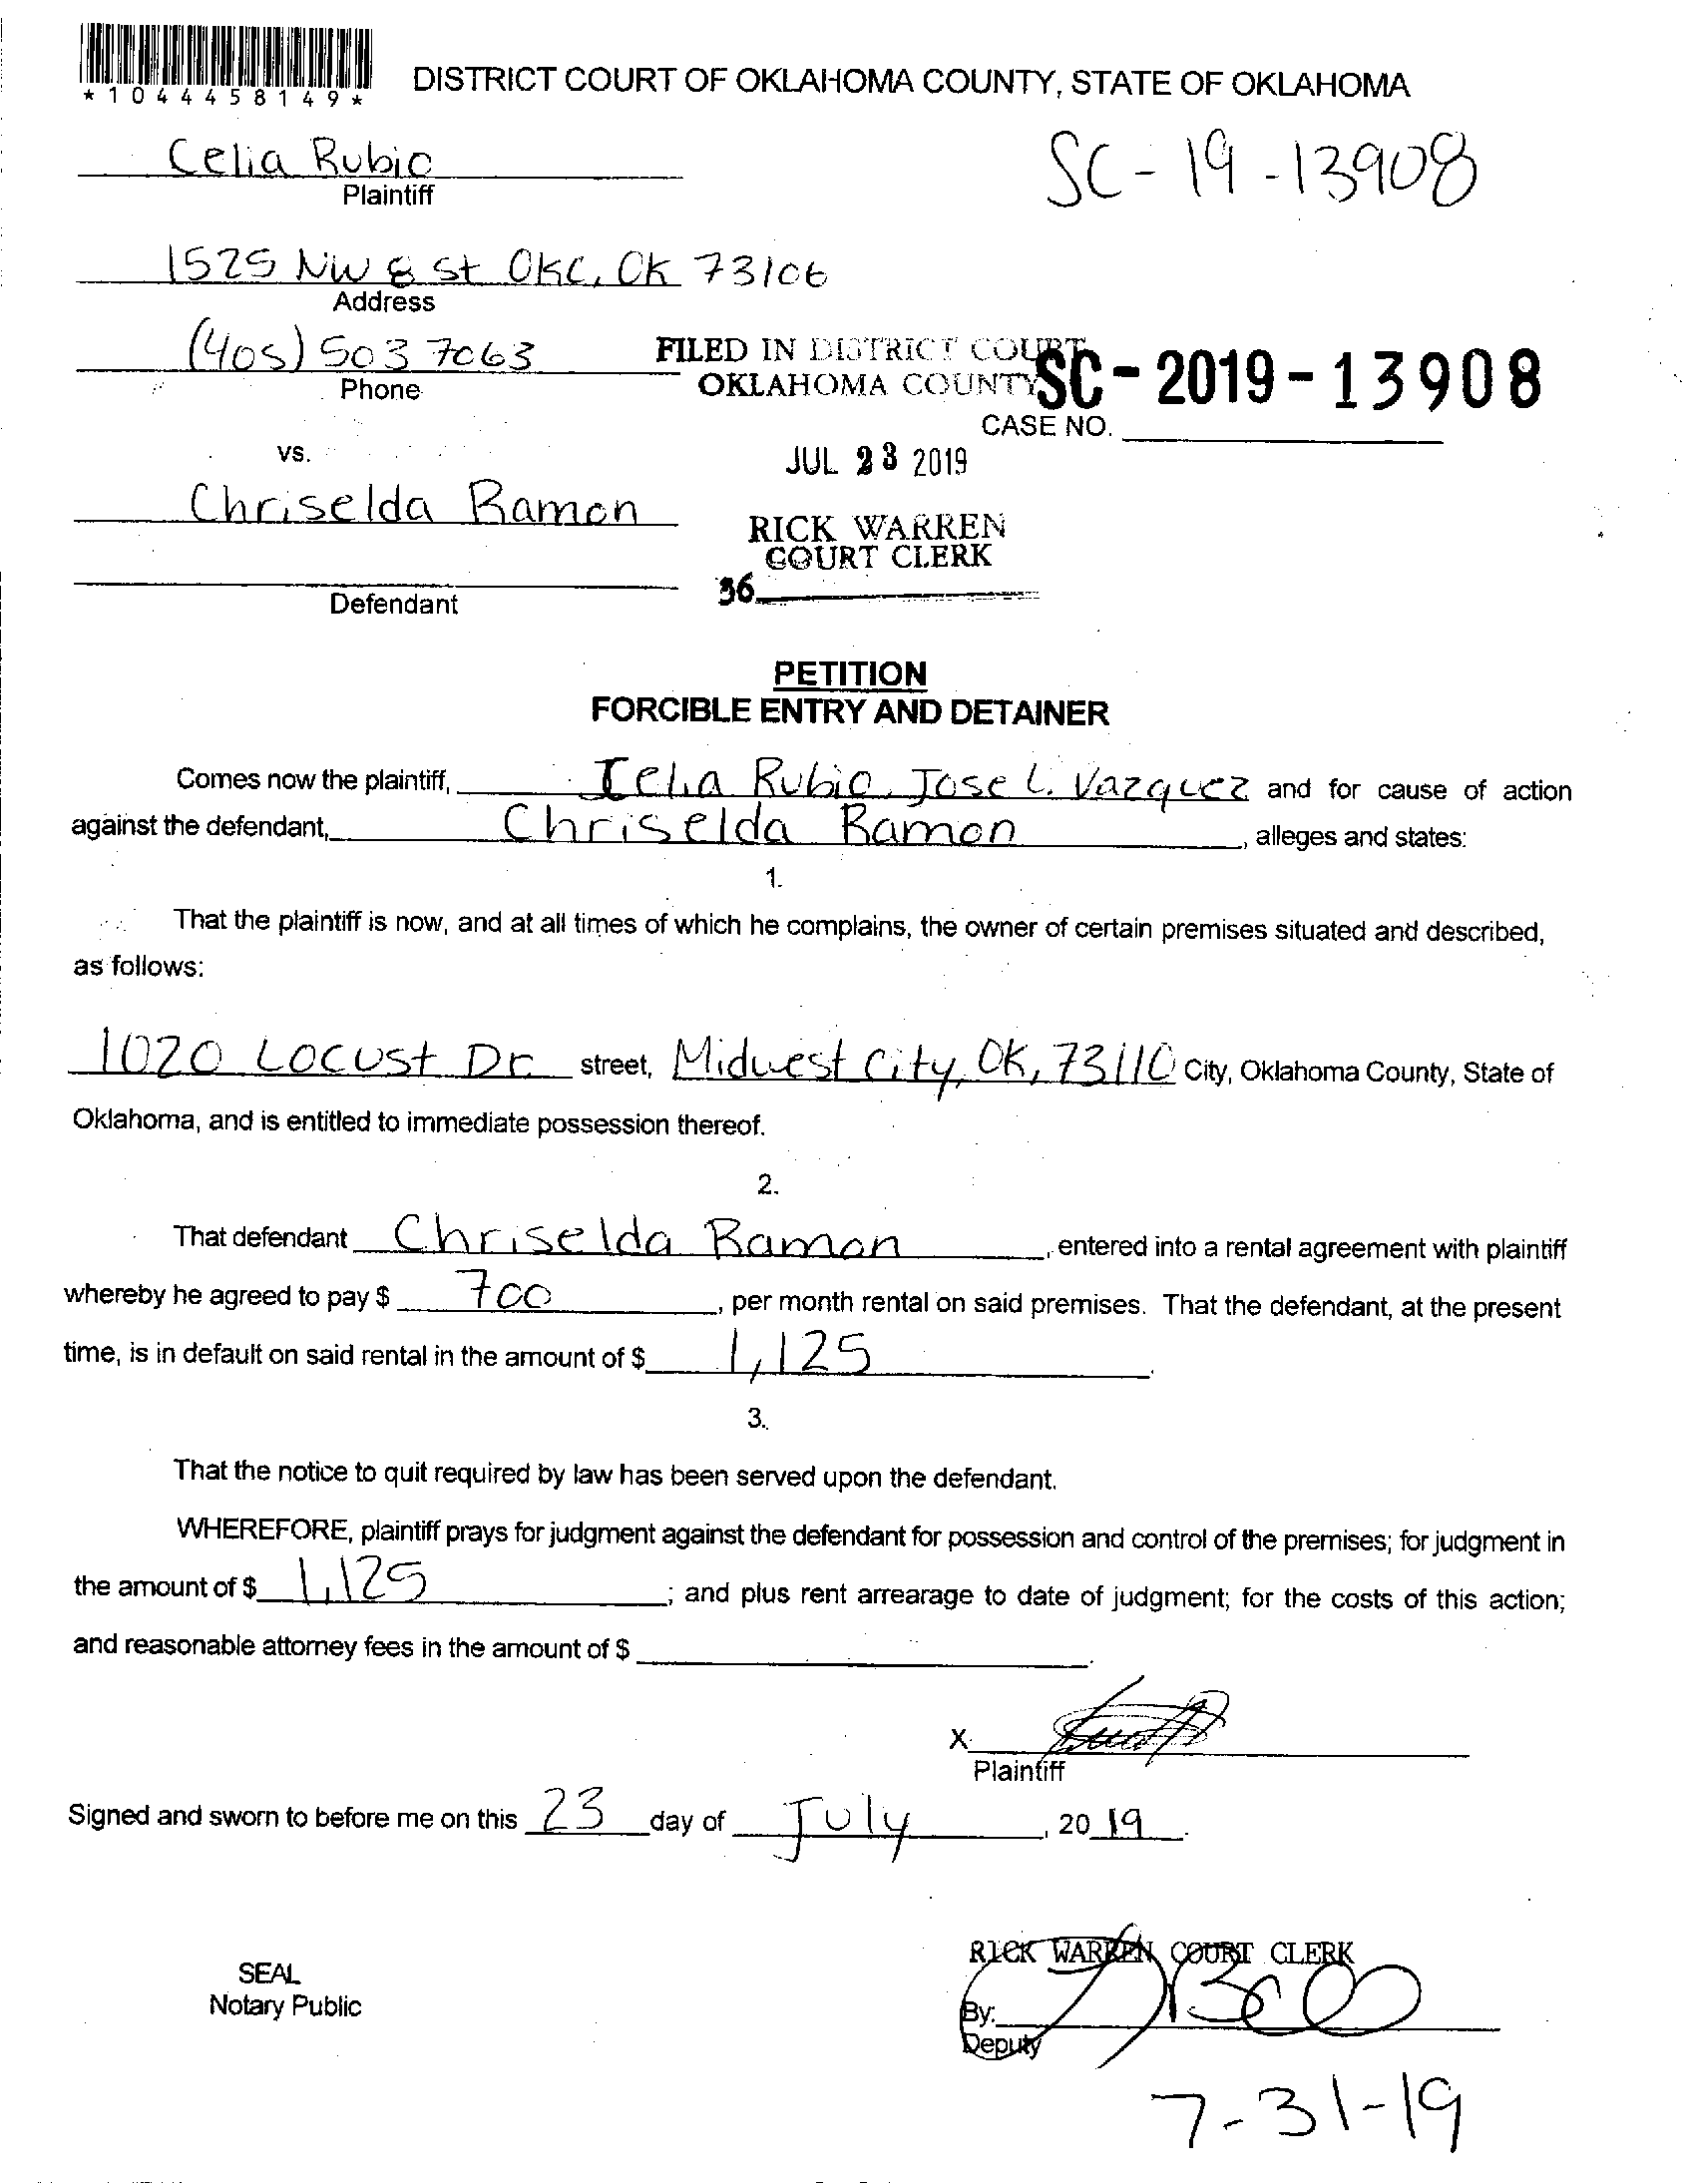 *1044458149*
DISTRICT COURT OF OKLAHOMA COUNTY, STATE OF OKLAHOMA
Celia Rubio
Plaintiff
SC-19-13908
1525 NW 8 St OKC, OK 73106
Address
(405) 503 7063
Phone
FILED IN DISTRICT COURT
OKLAHOMA COUNTY
SC-2019-13908
CASE NO.
vs.
JUL 23 2019
Chriselda Ramon
RICK WARREN
COURT CLERK
36
Defendant
PETITION
FORCIBLE ENTRY AND DETAINER
Comes now the plaintiff, Celia Rubio, Jose L. Vazquez and for cause of action
against the defendant, Chriselda Ramon, alleges and states:
1.
That the plaintiff is now, and at all times of which he complains, the owner of certain premises situated and described,
as follows:
1020 Locust Dr. street, Midwest City, OK, 73110 City, Oklahoma County, State of
Oklahoma, and is entitled to immediate possession thereof.
2.
That defendant Chriselda Ramon, entered into a rental agreement with plaintiff
whereby he agreed to pay $ 700, per month rental on said premises. That the defendant, at the present
time, is in default on said rental in the amount of $ 1,125.
3.
That the notice to quit required by law has been served upon the defendant.
WHEREFORE, plaintiff prays for judgment against the defendant for possession and control of the premises; for judgment in
the amount of $ 1,125; and plus rent arrearage to date of judgment; for the costs of this action;
and reasonable attorney fees in the amount of $
X
Plaintiff
Signed and sworn to before me on this 23 day of July, 20 19.
RICK WARREN COURT CLERK
SEAL
Notary Public
By:
Deputy
7-31-19